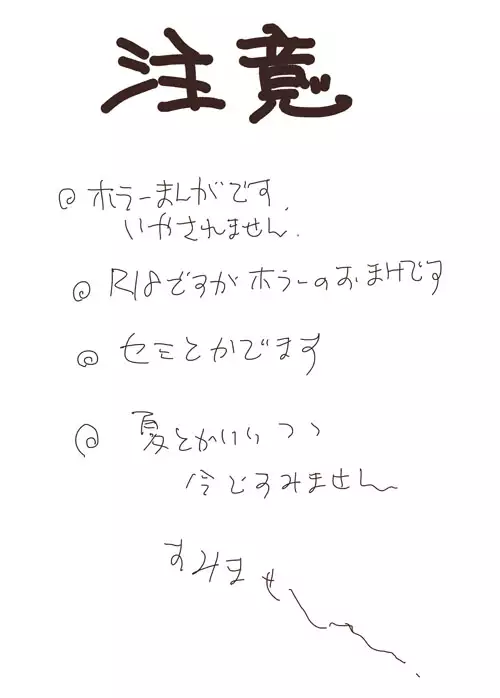 注意
◎ ホラーまんがです
いやされません.
◎ R18ですがホラーのおまけです
◎ セミとかでます
◎ 夏とかいいつつ
今ですみません
すみません